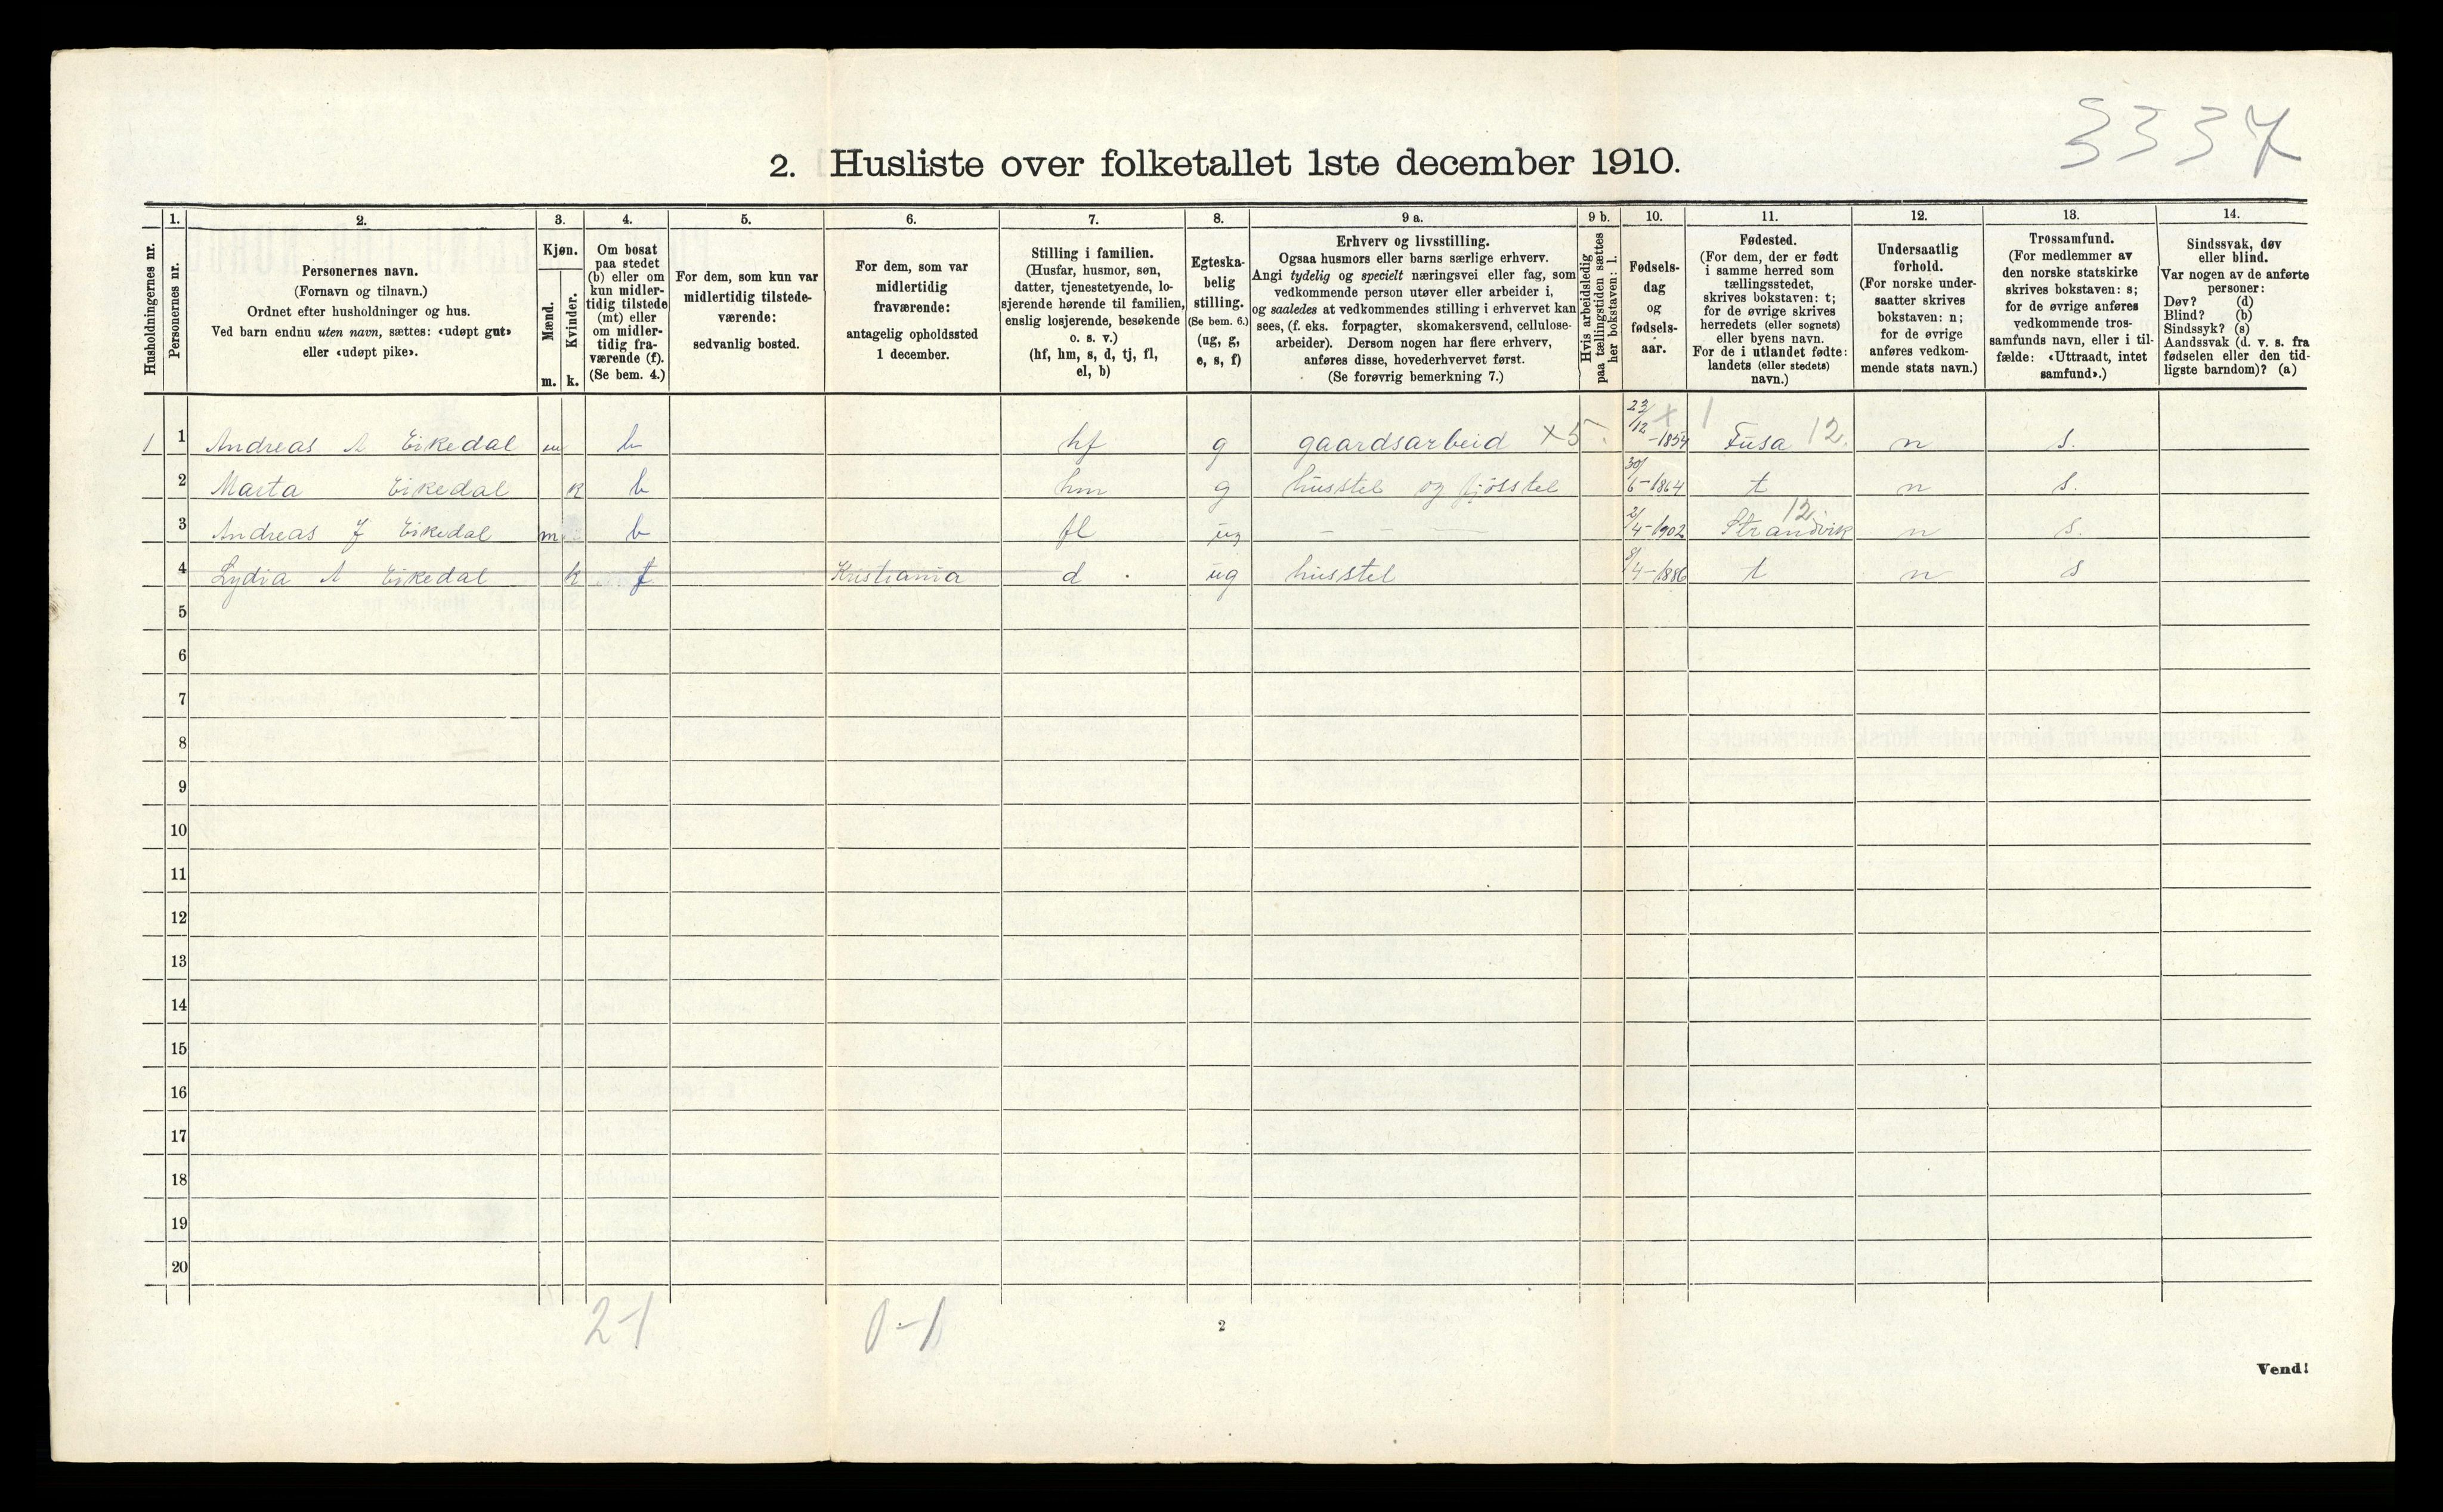 3337
2. Husliste over folketallet 1ste december 1910.
1. 2. 3. 4. 5. 6. 7. 8. 9 a. 9 b. 10. 11. 12. 13. 14.
Husholdningernes nr.
Personernes nr.
Personernes navn.
(Fornavn og tilnavn.)
Ordnet efter husholdninger og hus.
Ved barn endnu uten navn, sættes: «udøpt gut»
eller «udøpt pike».
Kjøn.
Mænd.
Kvinder.
m. k.
Om bosat
paa stedet
(b) eller om
kun midler-
tidig tilstede
(mt) eller
om midler-
tidig fra-
værende (f).
(Se bem. 4.)
For dem, som kun var
midlertidig tilstede-
værende:
sedvanlig bosted.
For dem, som var
midlertidig
fraværende:
antagelig opholdssted
1 december.
Stilling i familien.
(Husfar, husmor, søn,
datter, tjenestetyende, lo-
sjerende hørende til familien,
enslig losjerende, besøkende
o. s. v.)
(hf, hm, s, d, tj, fl,
el, b)
Egteska-
belig
stilling.
(Se bem. 6.)
(ug, g,
e, s, f)
Erhverv og livsstilling.
Ogsaa husmors eller barns særlige erhverv.
Angi tydelig og specielt næringsvei eller fag, som
vedkommende person utøver eller arbeider i,
og saaledes at vedkommendes stilling i erhvervet kan
sees, (f. eks. forpagter, skomakersvend, cellulose-
arbeider). Dersom nogen har flere erhverv,
anføres disse, hovederhvervet først.
(Se forøvrig bemerkning 7.)
Hvis arbeidsledig
paa tællingstiden sættes
her bokstaven: l.
Fødsels-
dag
og
fødsels-
aar.
Fødested.
(For dem, der er født
i samme herred som
tællingsstedet,
skrives bokstaven: t;
for de øvrige skrives
herredets (eller sognets)
eller byens navn.
For de i utlandet fødte:
landets (eller stedets)
navn.)
Undersaatlig
forhold.
(For norske under-
saatter skrives
bokstaven: n;
for de øvrige
anføres vedkom-
mende stats navn.)
Trossamfund.
(For medlemmer av
den norske statskirke
skrives bokstaven: s;
for de øvrige anføres
vedkommende tros-
samfunds navn, eller i til-
fælde: «Uttraadt, intet
samfund».)
Sindssvak, døv
eller blind.
Var nogen av de anførte
personer:
Døv? (d)
Blind? (b)
Sindssyk? (s)
Aandssvak (d. v. s. fra
fødselen eller den tid-
ligste barndom)? (a)
1 1 Andreas A Eikedal m b hf g gaardsarbeid x5. 23/12-1854 x 1 Fusa 12. n s.
2 Marta Eikedal k b hm g husstel og fjøsstel 30/6-1864 t n s.
3 Andreas J Eikedal m b fl ug - - - 2/4-1902 Strandvik 12. n s.
4 Lydia A Eikedal k f Kristiania d . ug husstel 8/4-1886 t n s
5
6
7
8
9
10
11
12
13
14
15
16
17
18
19
20
2-1 0-1
2
Vend!